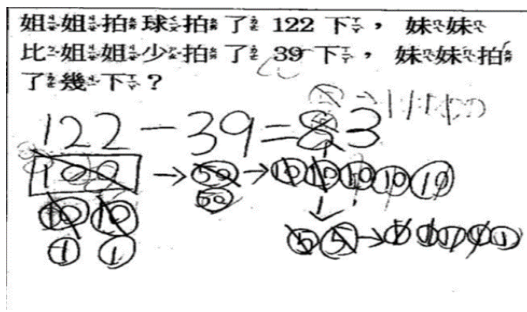 姐姐拍球拍了 122 下，妹妹
比姐姐少拍了 39 下，妹妹拍
了幾下？
122-39=83
100 → 50 → 10 10 10 10 10
50
10 10
1 1
5 5 → 1 1 1 1 1